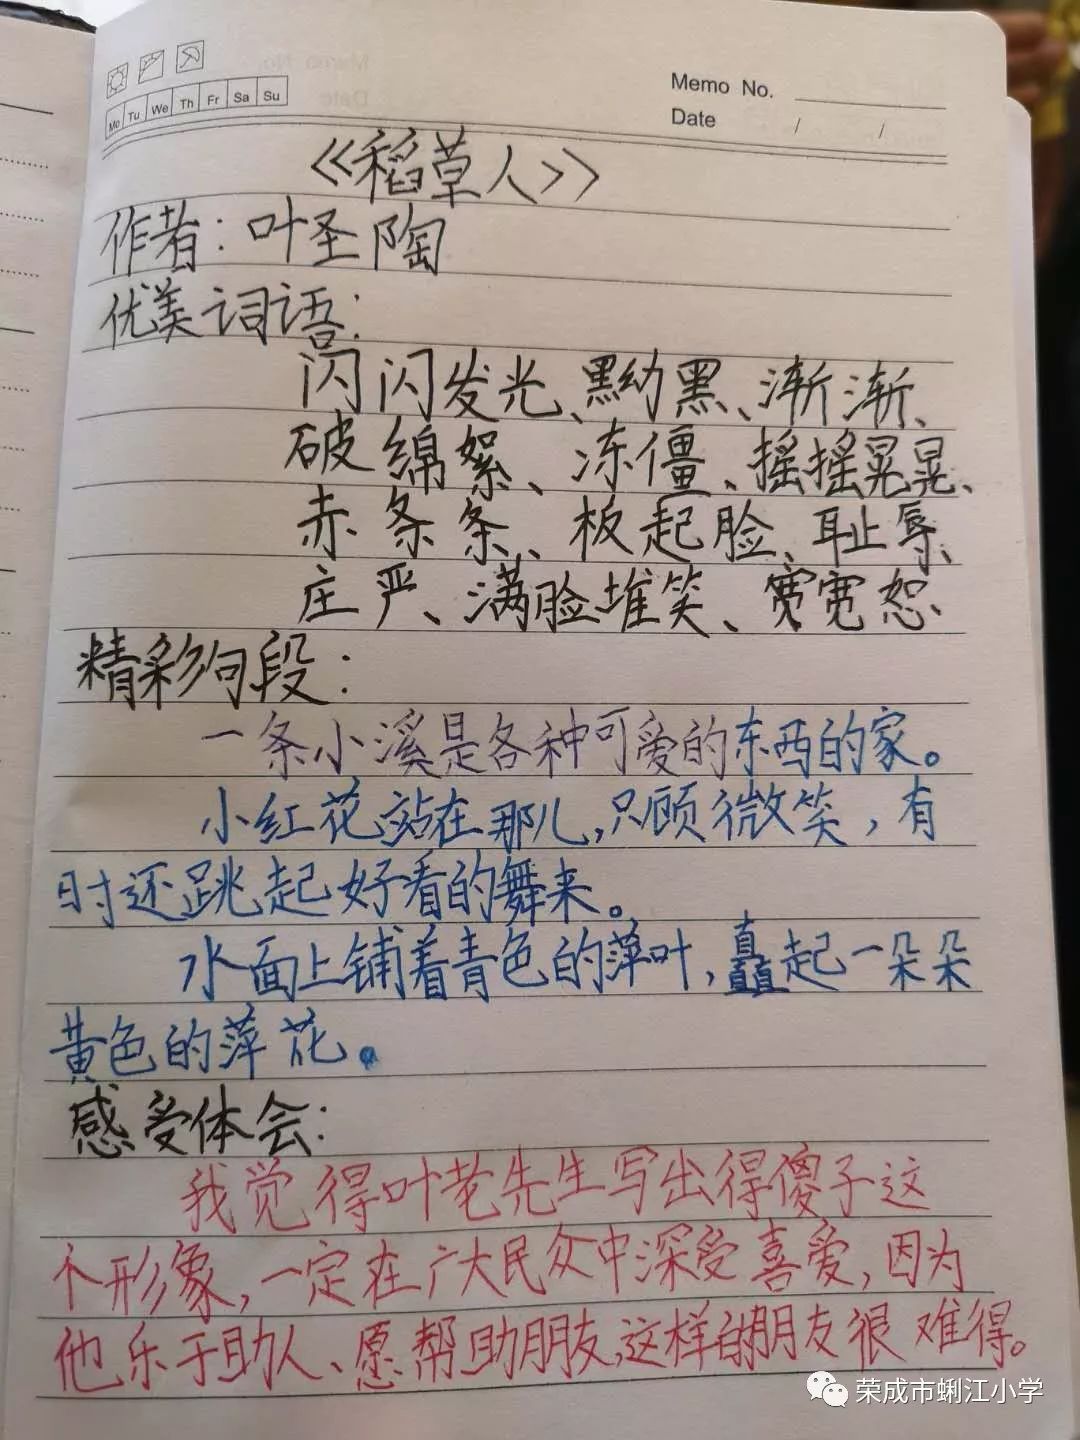 Memo No.
Mo Tu We Th Fr Sa Su
Date / /
《稻草人》
作者:叶圣陶
优美词语:
闪闪发光、黑黝黑、渐渐、
破绵絮、冻僵、摇摇晃晃、
赤条条、板起脸、耻辱、
庄严、满脸堆笑、宽宽恕、
精彩句段:
一条小溪是各种可爱的东西的家。
小红花站在那儿,只顾微笑,有
时还跳起好看的舞来。
水面上铺着青色的萍叶,矗起一朵朵
黄色的萍花。
感受体会:
我觉得叶老先生写出得傻子这
个形象,一定在广大民众中深受喜爱,因为
他乐于助人、愿帮助朋友,这样的朋友很难得。
荣成市蜊江小学